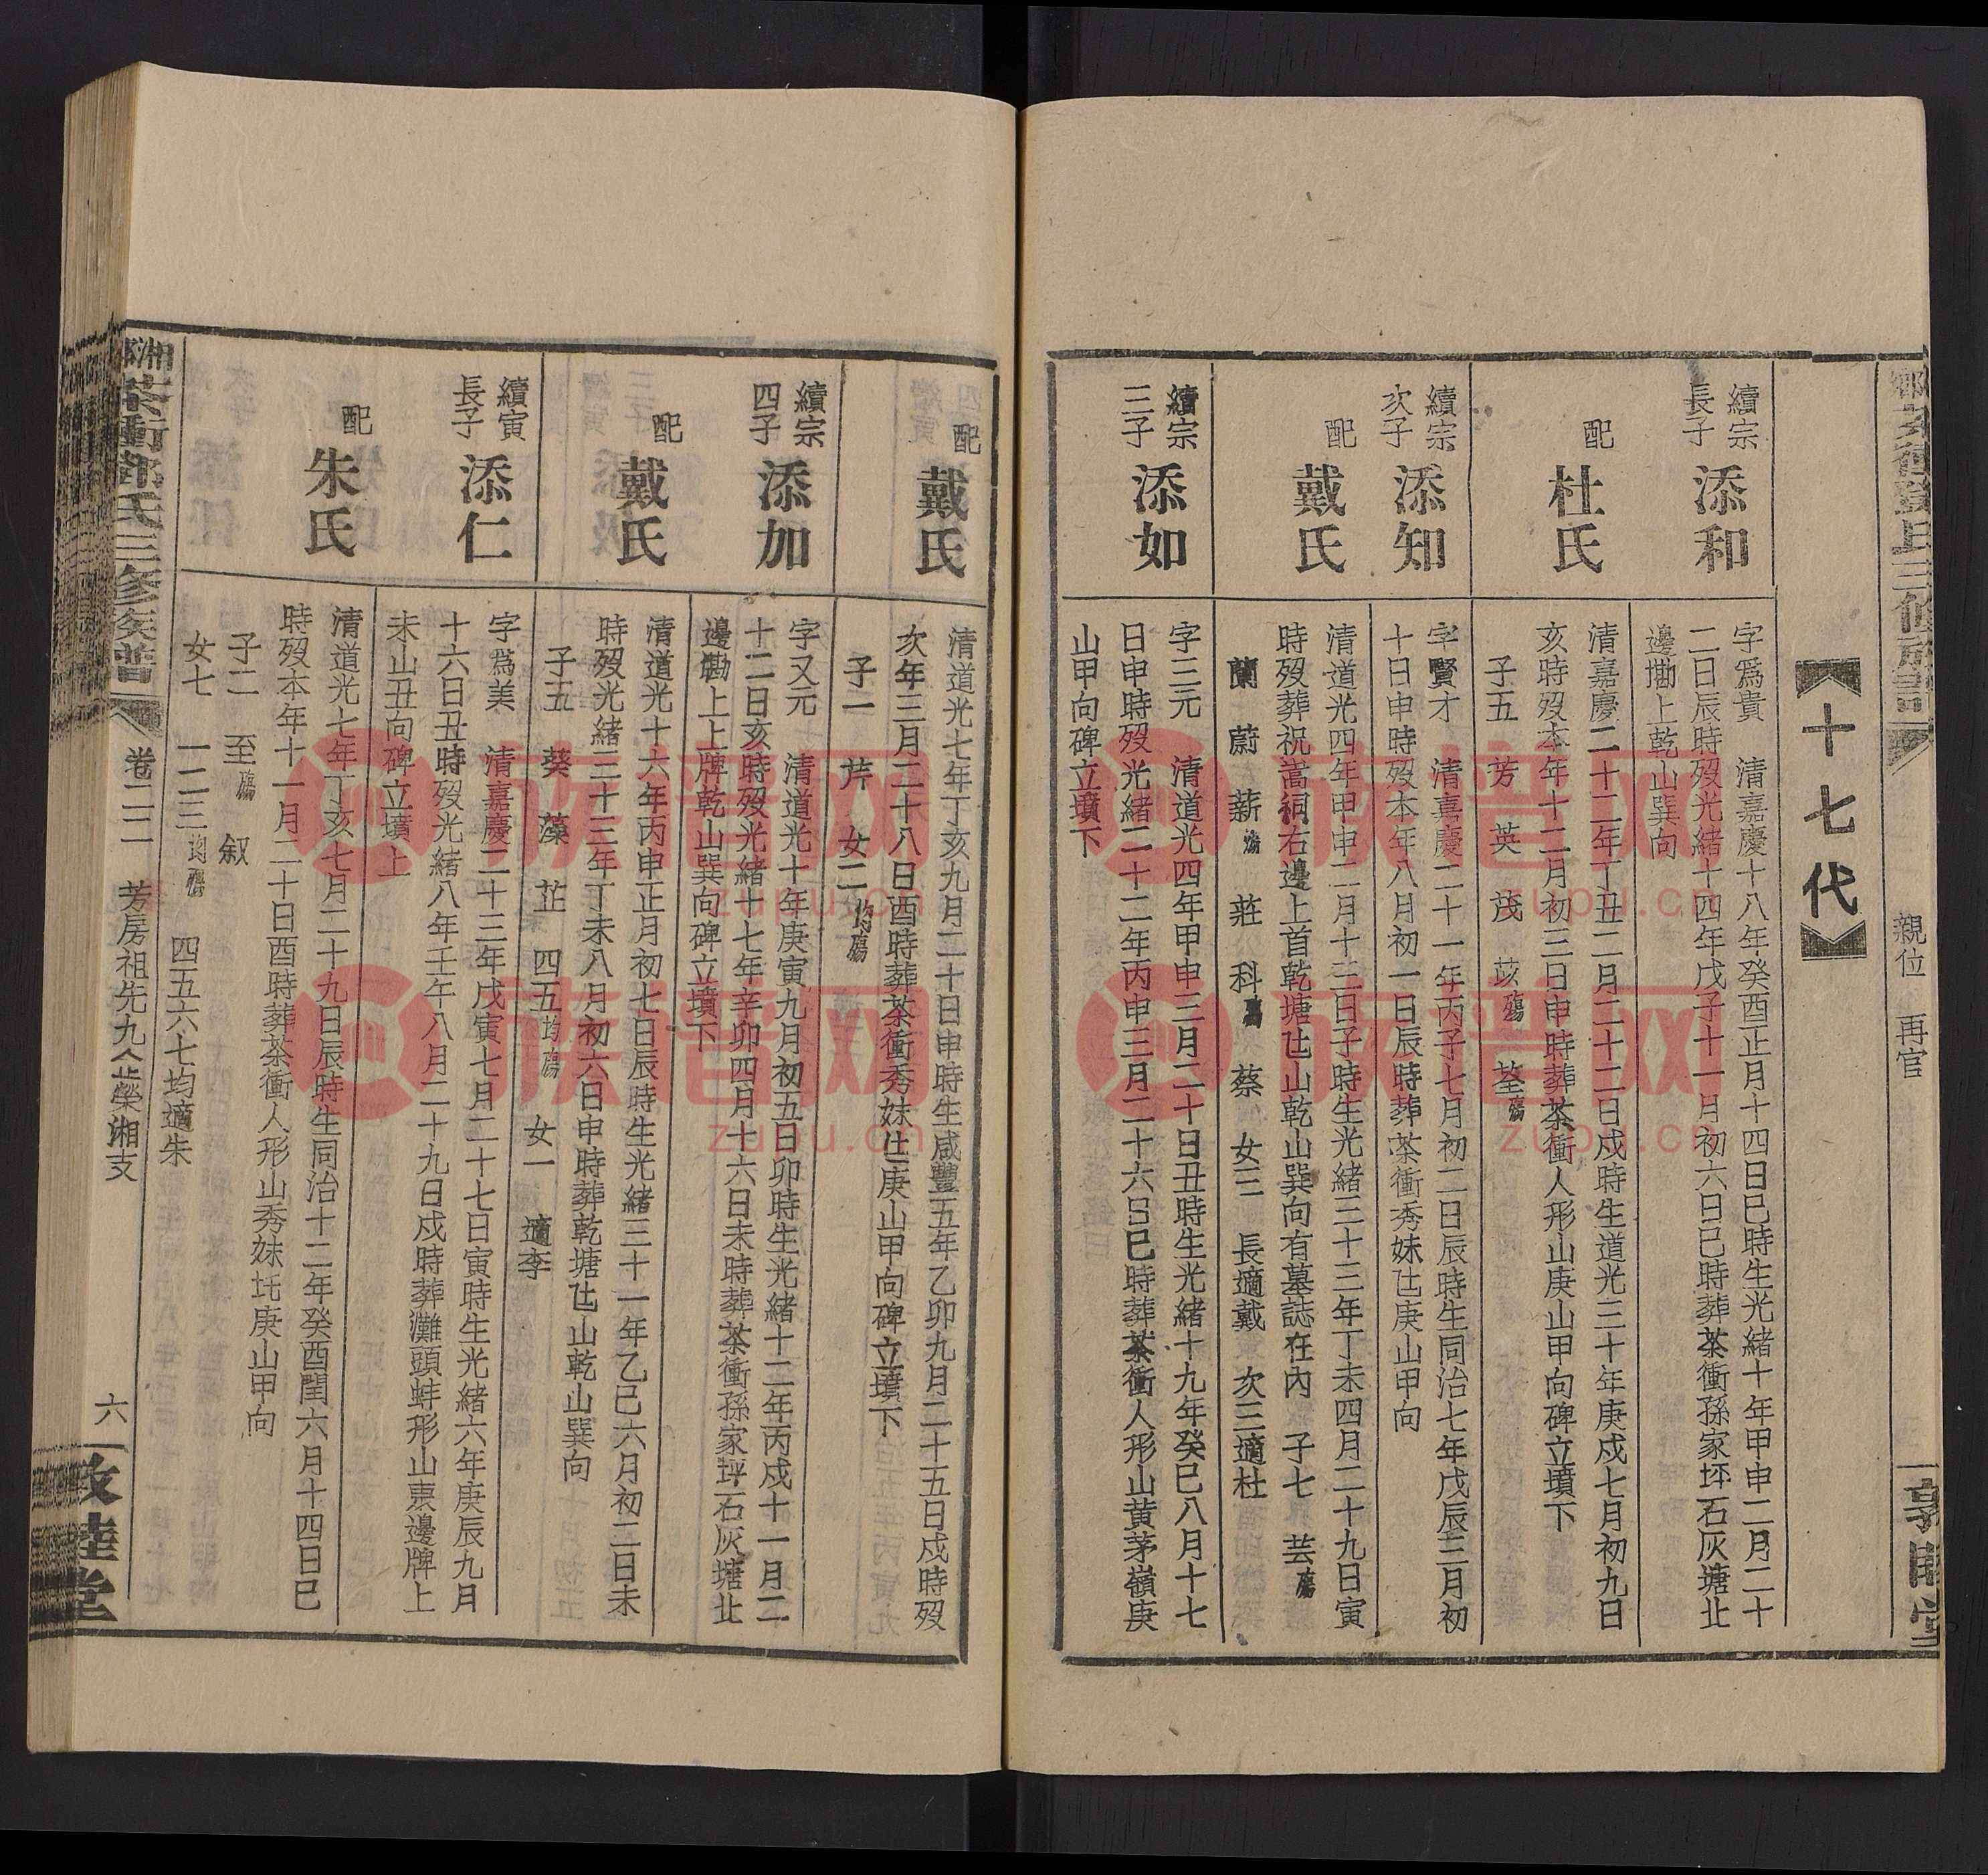 親位 再官
十七代
續宗
長子
添和
字爲貴 清嘉慶十八年癸酉正月十四日巳時生光緒十年甲申二月二十
二日辰時歿光緒十四年戊子十一月初六日巳時葬茶衝孫家坪石灰塘北
邊勘上乾山巽向
配
杜氏
清嘉慶二十二年丁丑二月二十二日戍時生道光三十年庚戍七月初九日
亥時歿本年十二月初三日申時葬茶衝人形山庚山甲向碑立墳下
子五 芳 英 茂 荄殤 荃殤
續宗
次子
添知
字賢才 清嘉慶二十一年丙子七月初二日辰時生同治七年戊辰三月初
十日申時歿本年八月初一日辰時葬茶衝秀妹庄庚山甲向
配
戴氏
清道光四年甲申二月十三日子時生光緒三十三年丁未四月二十九日寅
時歿葬祝嵩祠右邊上首乾塘庄山乾山巽向有墓誌在內 子七 芸殤
蘭 蔚 薪殤 莊 科殤 蔡 女三 長適戴 次三適杜
續宗
三子
添如
字三元 清道光四年甲申三月二十日丑時生光緒十九年癸巳八月十七
日申時歿光緒二十二年丙申三月二十六日巳時葬茶衝人形山黃茅嶺庚
山甲向碑立墳下
配
戴氏
清道光七年丁亥九月二十日申時生咸豐五年乙卯九月二十五日戍時歿
次年三月二十八日酉時葬茶衝秀妹庄庚山甲向碑立墳下
子一 芹 女二均殤
續宗
四子
添加
字又元 清道光十年庚寅九月初五日卯時生光緒十二年丙戍十一月二
十二日亥時歿光緒十七年辛卯四月十六日未時葬茶衝孫家坪石灰塘北
邊勘上上牌乾山巽向碑立墳下
配
戴氏
清道光十六年丙申正月初七日辰時生光緒三十一年乙巳六月初二日未
時歿光緒三十三年丁未八月初六日申時葬乾塘庄山乾山巽向
子五 葵 藻 芷 四五均殤 女一 適李
續寅
長子
添仁
字爲美 清嘉慶二十三年戊寅七月二十七日寅時生光緒六年庚辰九月
十六日丑時歿光緒八年壬午八月二十九日戍時葬灘頭蚌形山東邊牌上
未山丑向碑立墳上
配
朱氏
清道光七年丁亥七月二十九日辰時生同治十二年癸酉閏六月十四日巳
時歿本年十一月二十日酉時葬茶衝人形山秀妹圫庚山甲向
子二 至殤 叙
女七 一二三均殤 四五六七均適朱
茶衝鄧氏三修族譜 卷二二 芳房祖先九仚榮湘支 六 敦睦堂
族谱网
zupu.cn
族谱网
zupu.cn
族谱网
zupu.cn
族谱网
zupu.cn